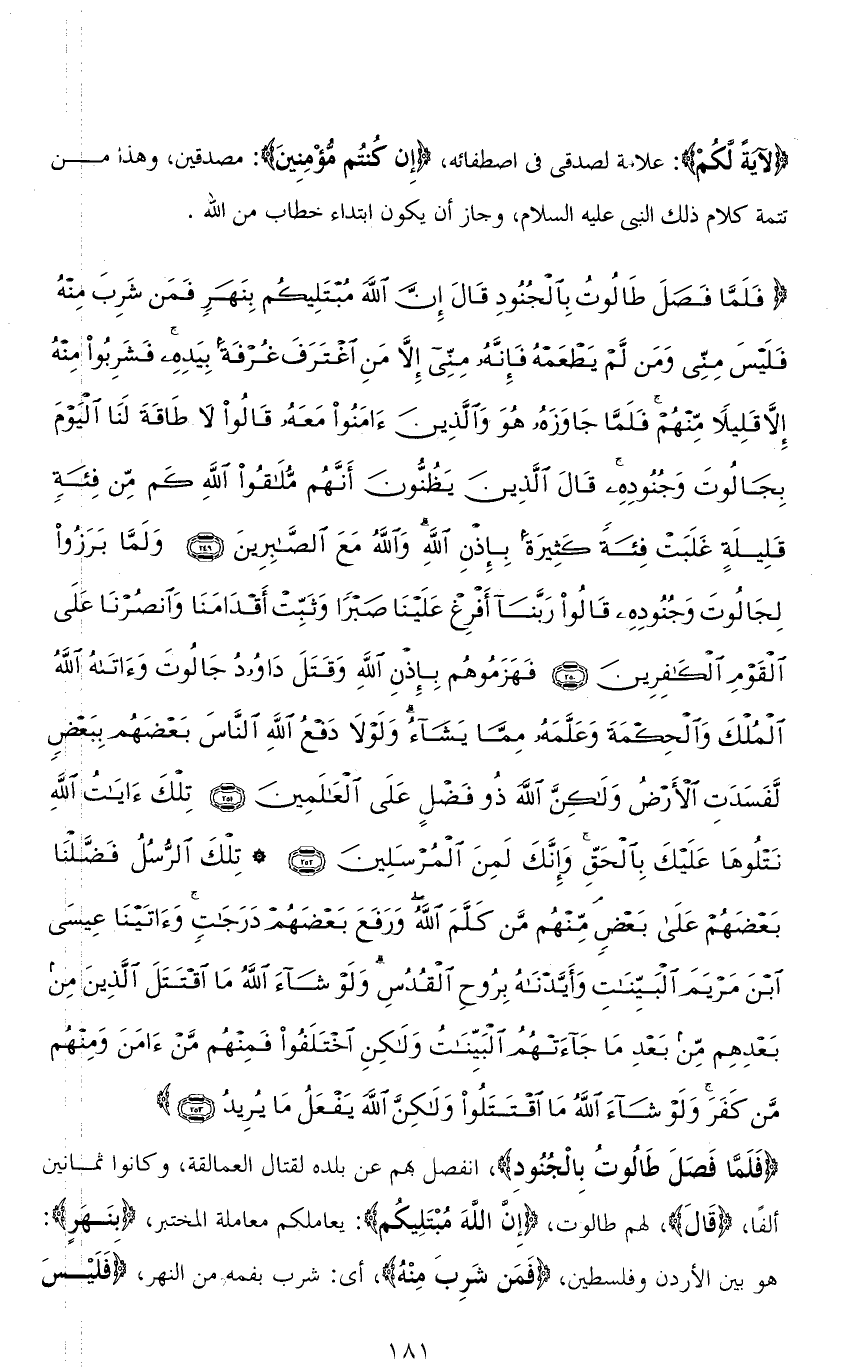 ﴿لَآيَةً لَّكُمْ﴾: علامة لصدقى فى اصطفائه، ﴿إِن كُنتُم مُّؤْمِنِينَ﴾: مصدقين، وهذا مـــن
تتمة كلام ذلك النبى عليه السلام، وجاز أن يكون ابتداء خطاب من الله .
﴿ فَلَمَّا فَصَلَ طَالُوتُ بِٱلْجُنُودِ قَالَ إِنَّ ٱللَّهَ مُبْتَلِيكُم بِنَهَرٍ فَمَن شَرِبَ مِنْهُ
فَلَيْسَ مِنِّى وَمَن لَّمْ يَطْعَمْهُ فَإِنَّهُۥ مِنِّىٓ إِلَّا مَنِ ٱغْتَرَفَ غُرْفَةًۢ بِيَدِهِۦۚ فَشَرِبُوا۟ مِنْهُ
إِلَّا قَلِيلًا مِّنْهُمْۚ فَلَمَّا جَاوَزَهُۥ هُوَ وَٱلَّذِينَ ءَامَنُوا۟ مَعَهُۥ قَالُوا۟ لَا طَاقَةَ لَنَا ٱلْيَوْمَ
بِجَالُوتَ وَجُنُودِهِۦۚ قَالَ ٱلَّذِينَ يَظُنُّونَ أَنَّهُم مُّلَٰقُوا۟ ٱللَّهِ كَم مِّن فِئَةٍ
قَلِيلَةٍ غَلَبَتْ فِئَةً كَثِيرَةًۢ بِإِذْنِ ٱللَّهِۗ وَٱللَّهُ مَعَ ٱلصَّٰبِرِينَ ٢٤٩ وَلَمَّا بَرَزُوا۟
لِجَالُوتَ وَجُنُودِهِۦ قَالُوا۟ رَبَّنَآ أَفْرِغْ عَلَيْنَا صَبْرًا وَثَبِّتْ أَقْدَامَنَا وَٱنصُرْنَا عَلَى
ٱلْقَوْمِ ٱلْكَٰفِرِينَ ٢٥٠ فَهَزَمُوهُم بِإِذْنِ ٱللَّهِ وَقَتَلَ دَاوُۥدُ جَالُوتَ وَءَاتَىٰهُ ٱللَّهُ
ٱلْمُلْكَ وَٱلْحِكْمَةَ وَعَلَّمَهُۥ مِمَّا يَشَآءُۗ وَلَوْلَا دَفْعُ ٱللَّهِ ٱلنَّاسَ بَعْضَهُم بِبَعْضٍ
لَّفَسَدَتِ ٱلْأَرْضُ وَلَٰكِنَّ ٱللَّهَ ذُو فَضْلٍ عَلَى ٱلْعَٰلَمِينَ ٢٥١ تِلْكَ ءَايَٰتُ ٱللَّهِ
نَتْلُوهَا عَلَيْكَ بِٱلْحَقِّۚ وَإِنَّكَ لَمِنَ ٱلْمُرْسَلِينَ ٢٥٢ ۞ تِلْكَ ٱلرُّسُلُ فَضَّلْنَا
بَعْضَهُمْ عَلَىٰ بَعْضٍۘ مِّنْهُم مَّن كَلَّمَ ٱللَّهُۖ وَرَفَعَ بَعْضَهُمْ دَرَجَٰتٍۚ وَءَاتَيْنَا عِيسَى
ٱبْنَ مَرْيَمَ ٱلْبَيِّنَٰتِ وَأَيَّدْنَٰهُ بِرُوحِ ٱلْقُدُسِۗ وَلَوْ شَآءَ ٱللَّهُ مَا ٱقْتَتَلَ ٱلَّذِينَ مِنۢ
بَعْدِهِم مِّنۢ بَعْدِ مَا جَآءَتْهُمُ ٱلْبَيِّنَٰتُ وَلَٰكِنِ ٱخْتَلَفُوا۟ فَمِنْهُم مَّنْ ءَامَنَ وَمِنْهُم
مَّن كَفَرَۚ وَلَوْ شَآءَ ٱللَّهُ مَا ٱقْتَتَلُوا۟ وَلَٰكِنَّ ٱللَّهَ يَفْعَلُ مَا يُرِيدُ ٢٥٣ ﴾
﴿فَلَمَّا فَصَلَ طَالُوتُ بِالْجُنُودِ﴾، انفصل هم عن بلده لقتال العمالقة، وكانوا ثمـــانين
ألفًا، ﴿قَالَ﴾، لهم طالوت، ﴿إِنَّ اللَّهَ مُبْتَلِيكُم﴾: يعاملكم معاملة المختبر، ﴿بِنَـــهَرٍ﴾:
هو بين الأردن وفلسطين، ﴿فَمَن شَرِبَ مِنْهُ﴾، أى: شرب بفمه من النهر، ﴿فَلَيْـــسَ
١٨١